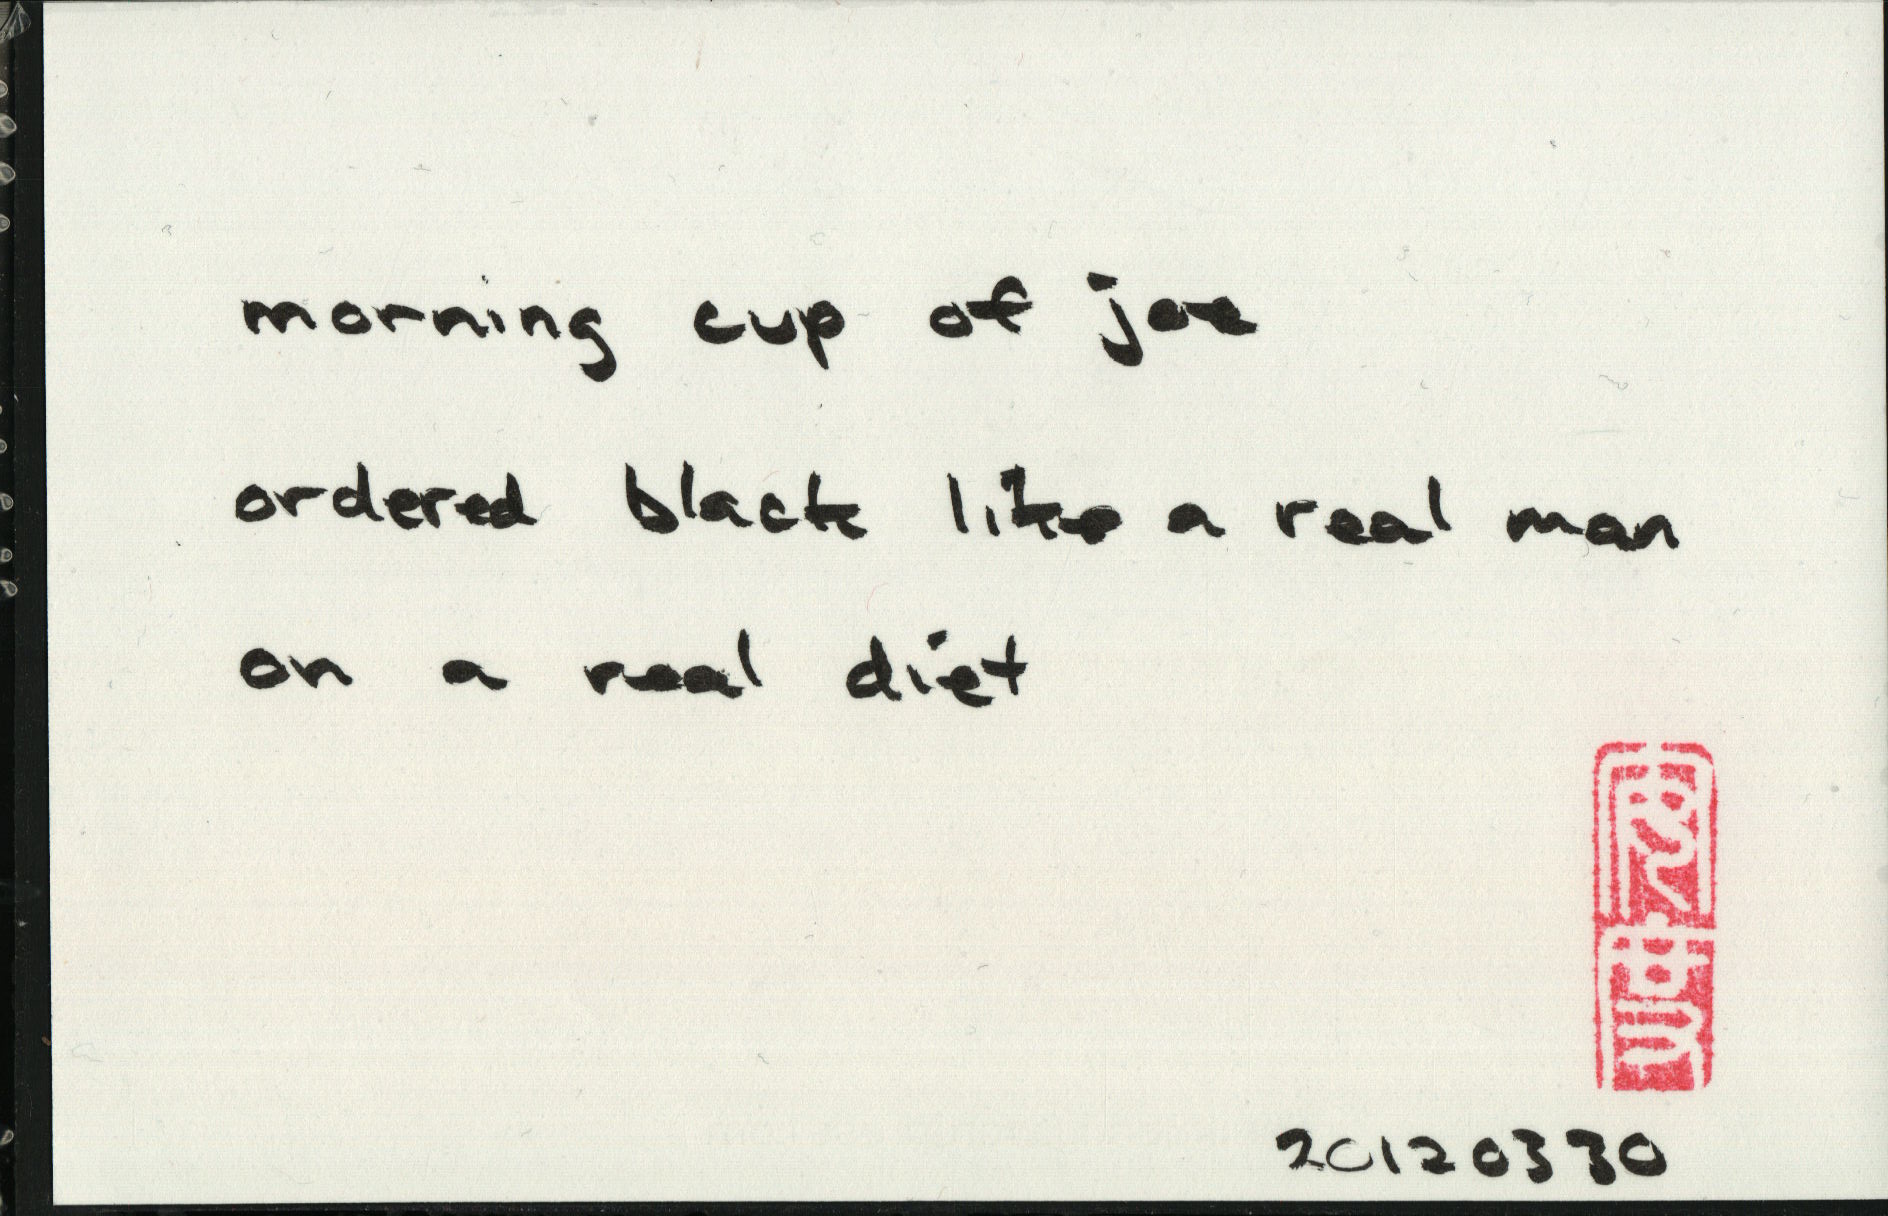 morning cup of joe
ordered black like a real man
on a real diet
20120330